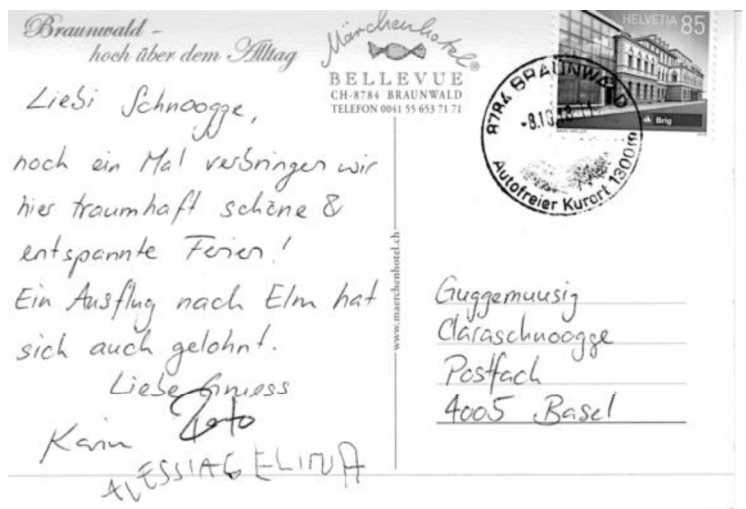 Braunwald -
hoch über dem Alltag
Märchenhotel®
BELLEVUE
CH-8784 BRAUNWALD
TELEFON 0041 55 653 71 71
HELVETIA 85
Brig
8784 BRAUNWALD
Autofreier Kurort 1300m
Liebi Schnoogge,
noch ein Mal verbringen wir
hier traumhaft schöne &
entspannte Ferien!
Ein Ausflug nach Elm hat
sich auch gelohnt.
Liebe Gruess
Karin Reto
ALESSIA & ELINA
www.maerchenhotel.ch
Guggemuusig
Claraschnoogge
Postfach
4005 Basel